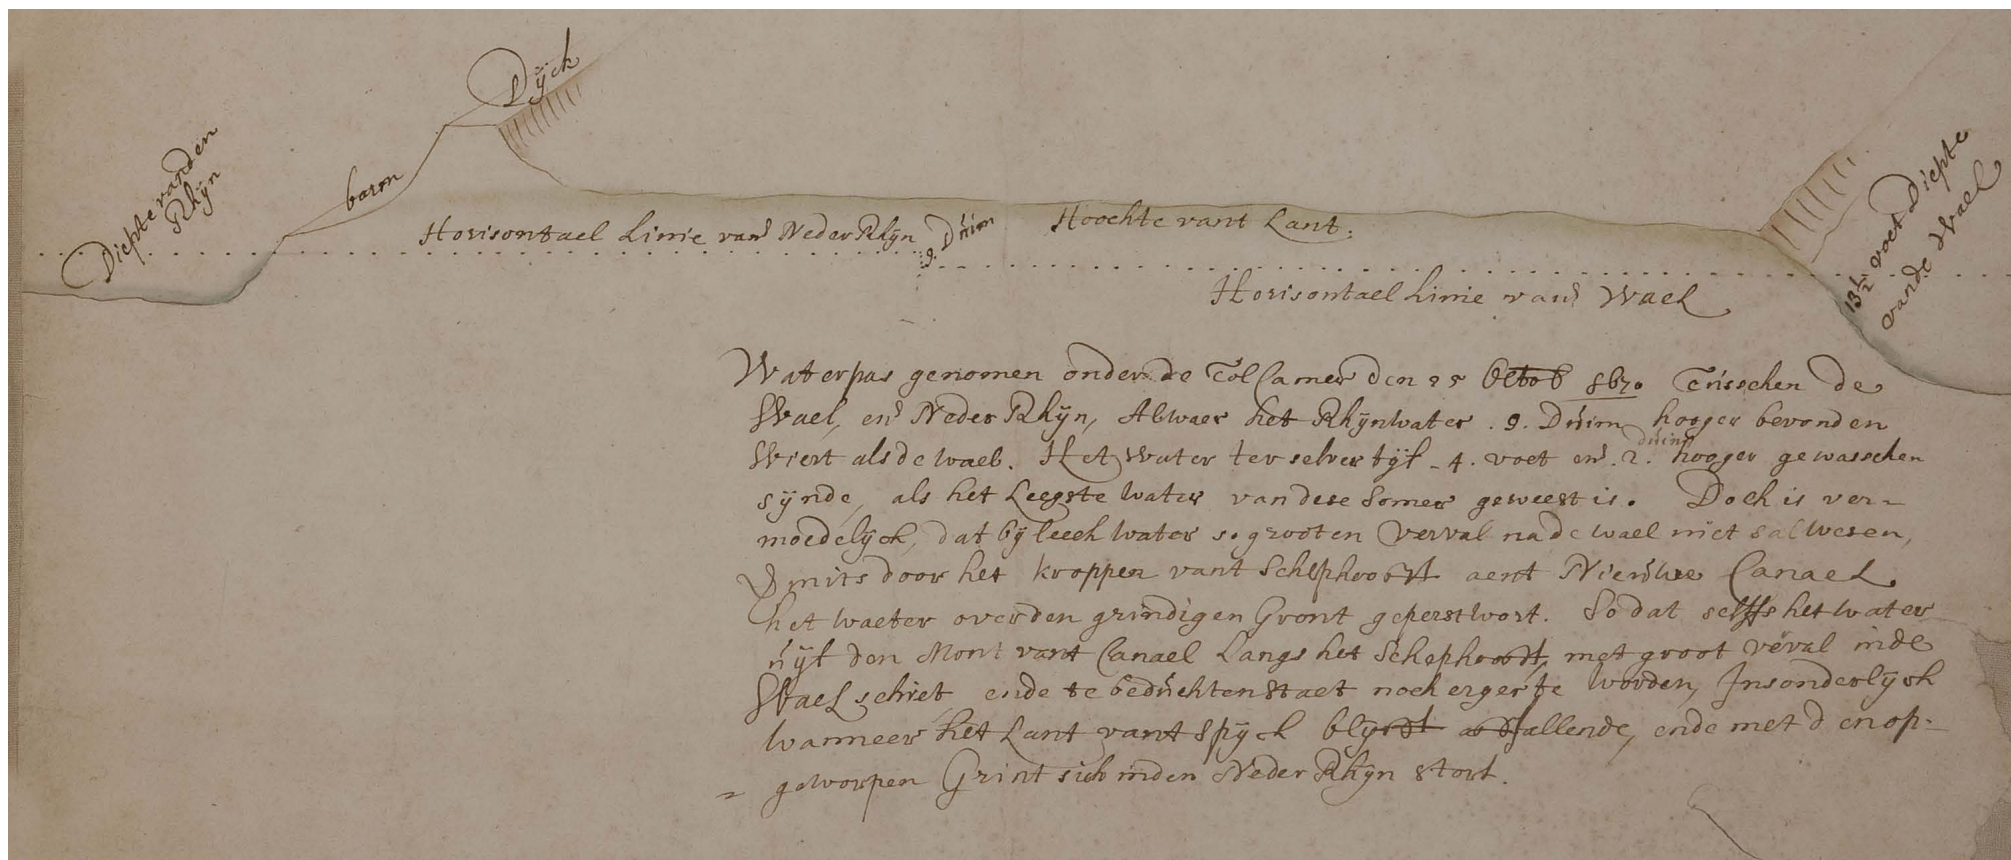 Dÿck
Diepte vanden
Rhÿn
barm
Horisontael Linie vand Neder Rhÿn
9. Duim
Hoochte vant Lant.
13½ voet Diepte
vande Wael
Horisontael Linie vand Wael
Waterpas genomen onder de Tol Camer den 25 Octob Tusschen de
Wael, end Neder Rhÿn, Alwaer het Rhÿnwater . 9. Duim hooger bevonden
Wiert als de wael. Het Water ter selver tÿt - 4. voet end . 2. duim hooger gewasschen
sÿnde, als het Leegste water van dese Somer geweest is. Doch is ver-
moedelÿck, dat bÿ leech water so grooten verval na de wael niet sal wesen,
mits door het kroppen vant Schephooft aent Nieuwe Canael
het waeter over den grindigen Gront geperst wort. So dat selffs het water
uÿt den Mont vant Canael Langs het Schephooft, met groot verval inde
Wael schiet, ende te beduchten staet noch erger te worden, Insonderlÿck
wanneer het Lant vant Spÿck blÿft afvallende, ende met den op-
= geworpen Grint sich inden Neder Rhÿn stort.